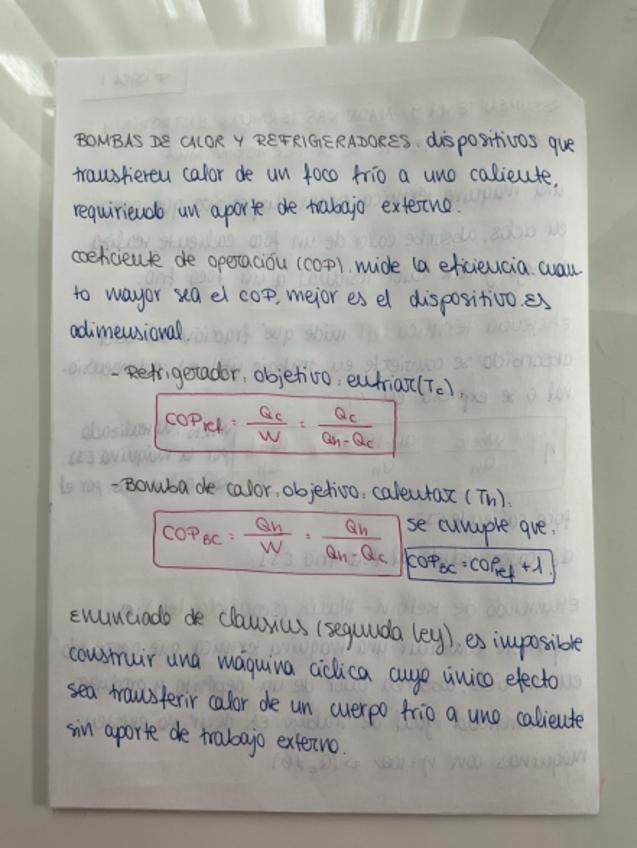 BOMBAS DE CALOR Y REFRIGERADORES. dispositivos que
transfieren calor de un foco frío a uno caliente,
requiriendo un aporte de trabajo externo.
coeficiente de operación (COP). mide la eficiencia. cuan-
to mayor sea el COP, mejor es el dispositivo. Es
adimensional.
- Refrigerador, objetivo: enfriar (Tc).
COP ref = Qc / W = Qc / (Qh - Qc)
- Bomba de calor, objetivo: calentar (Th).
COP BC = Qh / W = Qh / (Qh - Qc)
se cumple que:
COP BC = COP ref + 1.
Enunciado de Clausius (segunda ley). es imposible
construir una máquina cíclica cuyo único efecto
sea transferir calor de un cuerpo frío a uno caliente
sin aporte de trabajo externo.